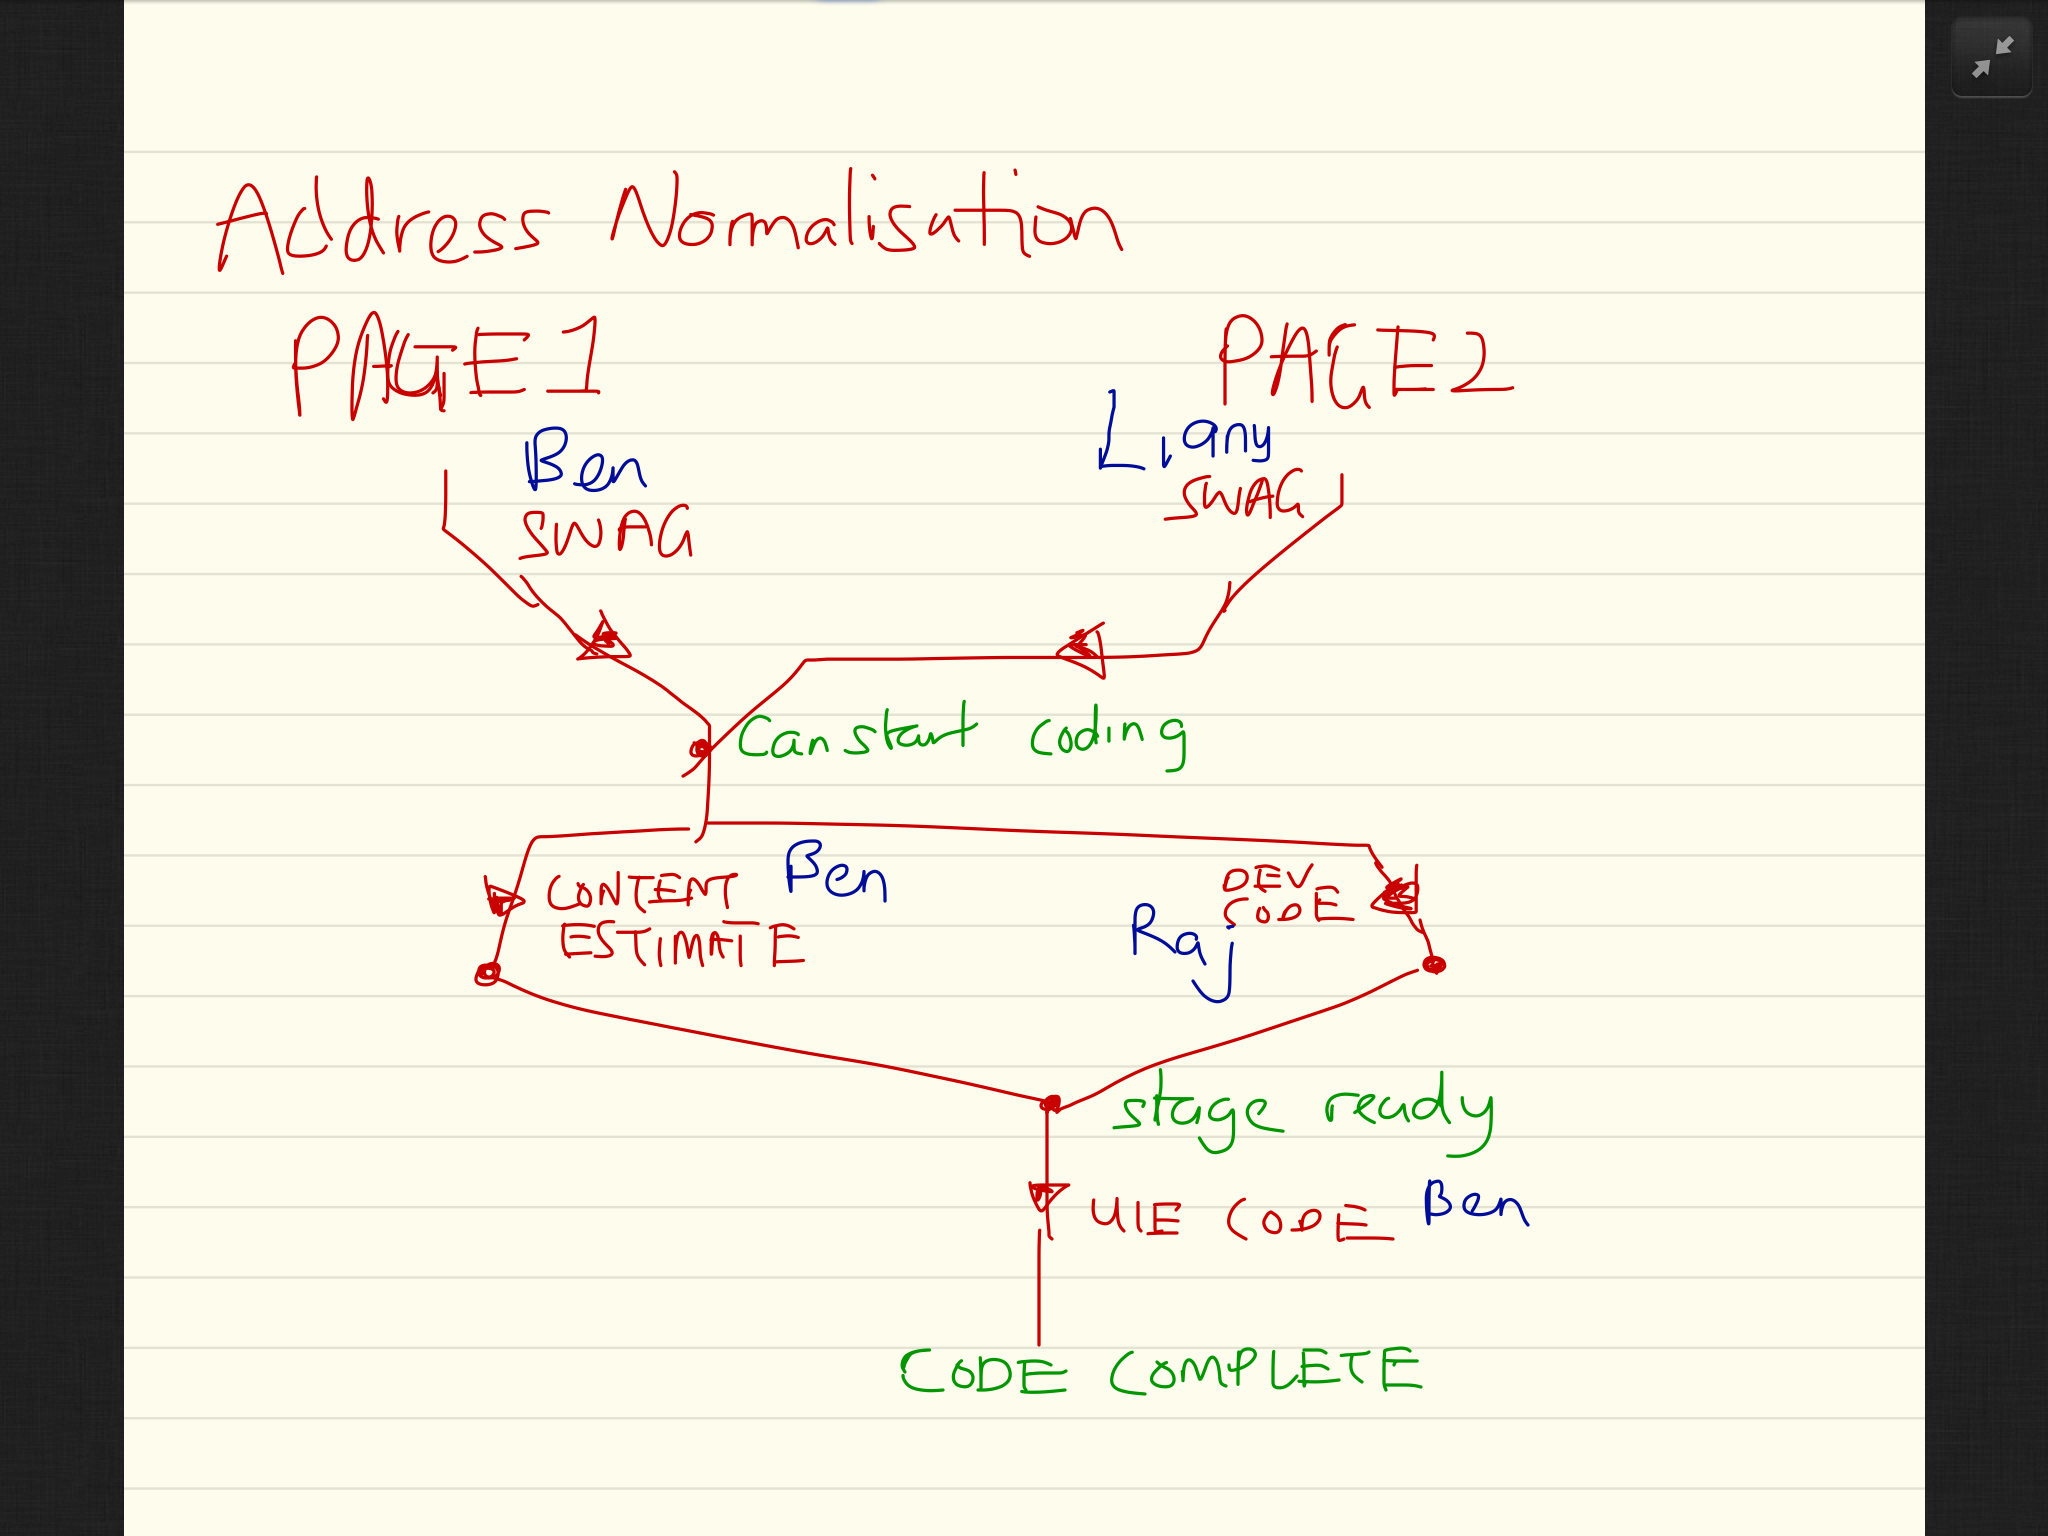 Address Normalisation
PAGE 1
PAGE 2
Ben
SWAG
Liany
SWAG
Can start coding
CONTENT
ESTIMATE
Ben
DEV
CODE
Raj
stage ready
UIE CODE Ben
CODE COMPLETE